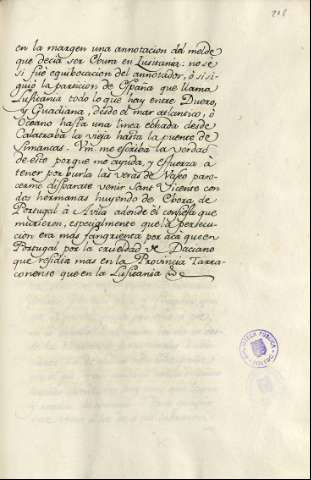 en la margen una annotacion del melde
que decia ser Ebura en Lusitania: no se
si fue equibocacion del annotador, ó si si-
guió la particion de España que llama
Lusitania todo lo que hay entre Duero,
y Guadiana, desde el mar atlantico, ó
Oceano hasta una linea echada desde
Calatraba la vieja hasta la puente de
Simancas. Vm. me escriba la verdad
de esto porque me ayuda, y esfuerza á
tener por burla las veras de Vaseo pare-
cerme disparate venir Sant Vicente con
dos hermanas huyendo de Ebora de
Portugal á Avila adonde el confiesa que
murieron, especialmente que la persecu-
cion era mas sangrienta por acá que en
Portugal por la crueldad de Daciano
que residia mas en la Provincia Tarra-
conense que en la Lusitania